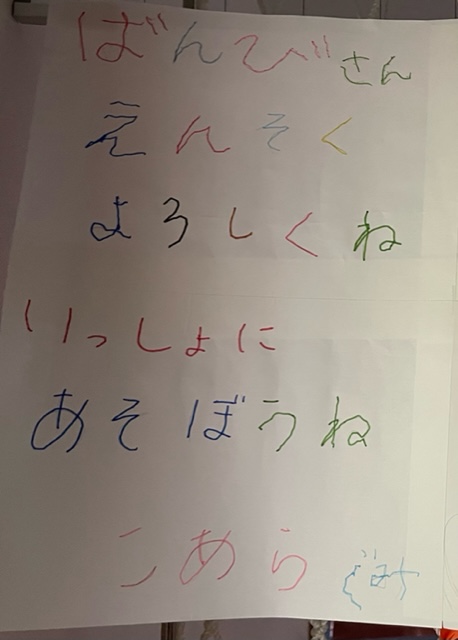 ばんびさん
えんそく
よろしくね
いっしょに
あそぼうね
こめらぐみ